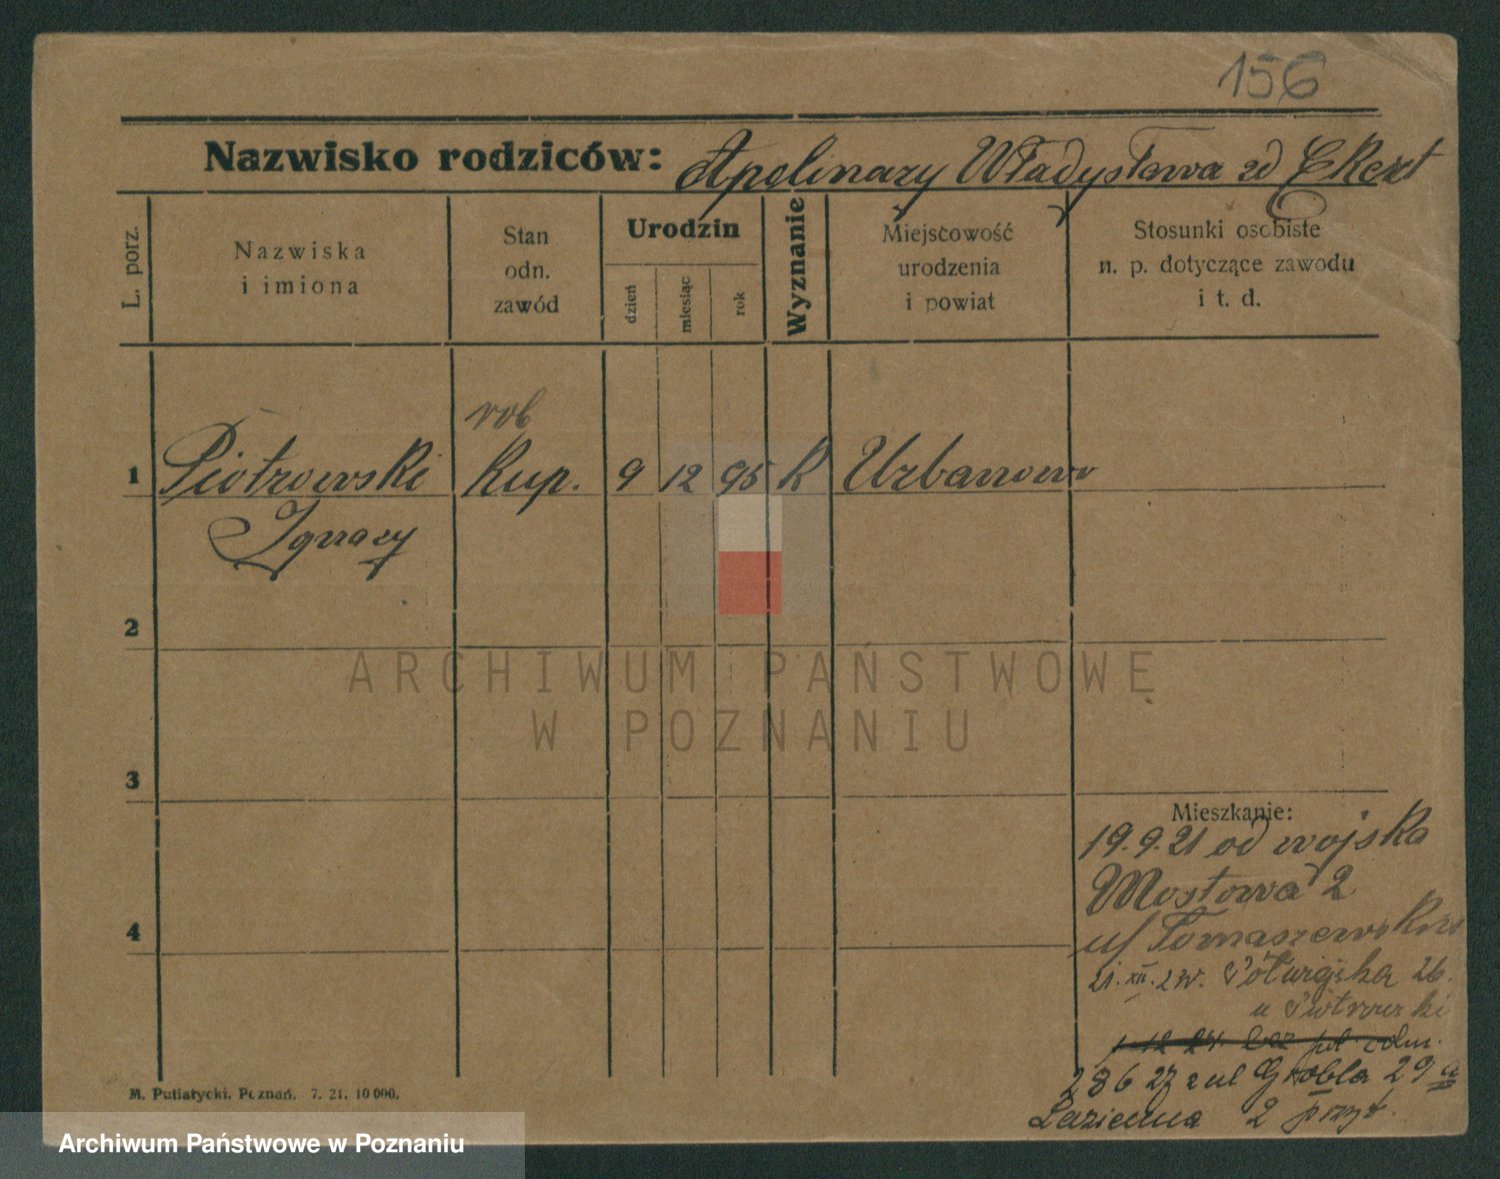 156
Nazwisko rodziców: Apolinary Władysława zd Ekert
L. porz.
Nazwiska
i imiona
Stan
odn.
zawód
Urodzin
dzień
miesiąc
rok
Wyznanie
Miejscowość
urodzenia
i powiat
Stosunki osobiste
n. p. dotyczące zawodu
i t. d.
rob
1 Piotrowski Kup. 9 12 95 K Urbanowo
Ignacy
2
ARCHIWUM PAŃSTWOWE
W POZNANIU
3
Mieszkanie:
19.9.21 od wojska
Mostowa 2
4
u/ Tomaszewskrz
21. XII. 2 26.
u Piotrowski
odm.
28 6 27 z ul Grobla 29 a
Łazienna 2 przyt.
M. Putiatycki, Poznań. 7. 21. 10 000.
Archiwum Państwowe w Poznaniu